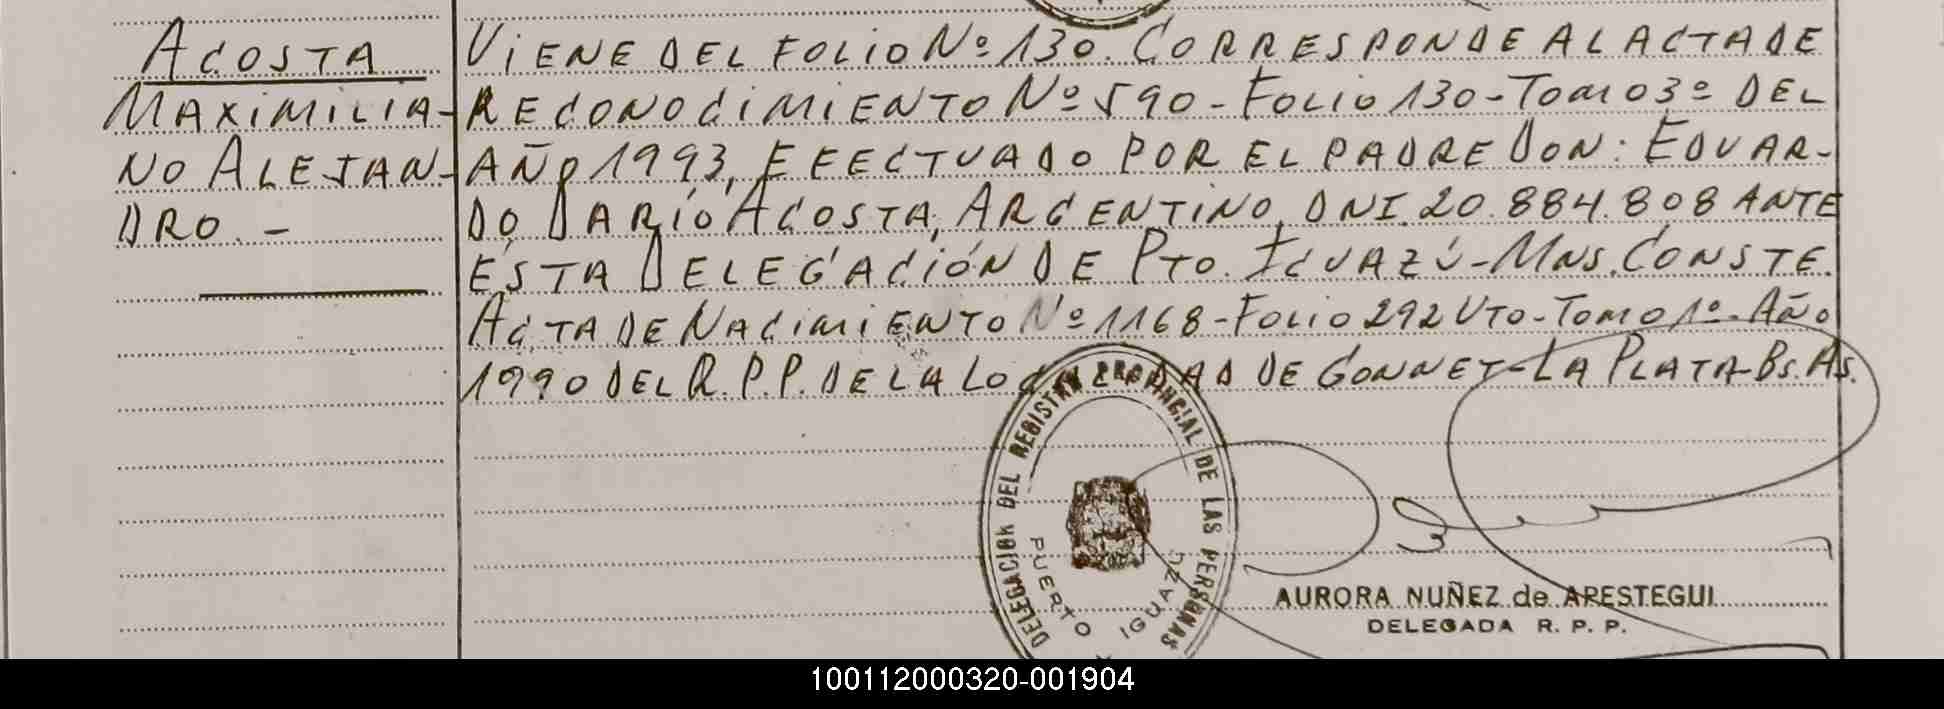 ACOSTA
MAXIMILIA-
NO ALEJAN-
DRO.-
VIENE DEL FOLIO Nº 130. CORRESPONDE AL ACTA DE
RECONOCIMIENTO Nº 590 - FOLIO 130 - TOMO 3º DEL
AÑO 1993, EFECTUADO POR EL PADRE DON: EDUAR-
DO DARÍO ACOSTA, ARGENTINO, DNI. 20.884.808 ANTE
ÉSTA DELEGACIÓN DE PTO. IGUAZÚ - MNS. CONSTE.
ACTA DE NACIMIENTO Nº 1168 - FOLIO 292 VTO - TOMO 1º - AÑO
1990 DEL R.P.P. DE LA LOCALIDAD DE GONNET - LA PLATA - BS. AS.
DELEGACION DEL REGISTRO PROVINCIAL DE LAS PERSONAS
PUERTO IGUAZU
AURORA NUÑEZ de ARESTEGUI
DELEGADA R. P. P.
100112000320-001904